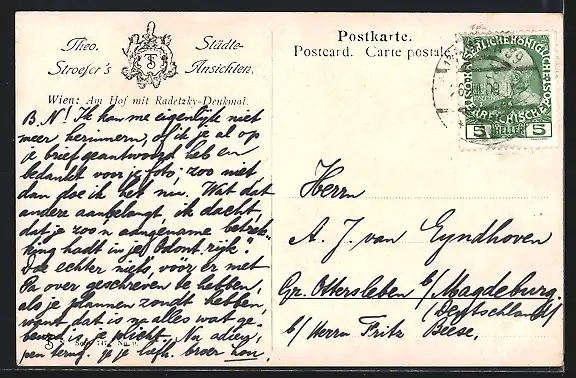 Theo. Stroefer's
TS
Städte-Ansichten.
Postkarte.
Postcard. Carte postale
Wien: Am Hof mit Radetzky-Denkmal.
B. N! Ik kan me eigenlijk niet
meer herinneren, of ik je al op
je brief geantwoord heb en
bedankt voor je foto; zoo niet
dan doe ik het nu. Wat dat
andere aanbelangt, ik dacht,
dat je zoo'n aangename betrek-
king hadt in je "Odont. rijk"!
Doe echter niets, vóór er met
Pa over geschreven te hebben,
als je plannen zondt hebben,
want dat is na alles wat ge-
beurd is je plicht. Na adieu,
je broer
5 HELLER 5
Herrn
A. J. van Eyndhoven
Gr. Ottersleben b/Magdeburg
(Deutschland)
b/ Herrn Fritz Beese.